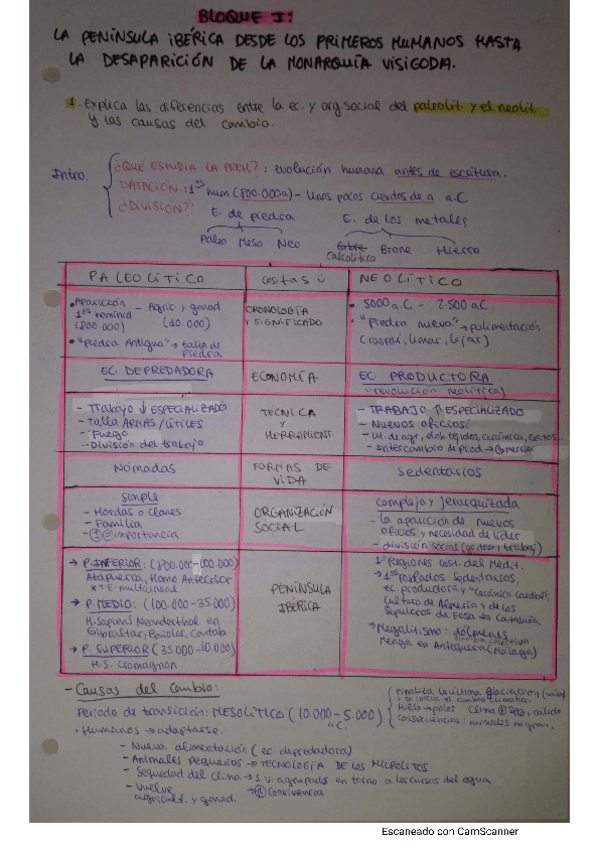 BLOQUE I:
LA PENÍNSULA IBÉRICA DESDE LOS PRIMEROS HUMANOS HASTA
LA DESAPARICIÓN DE LA MONARQUÍA VISIGODA.
1. Explica las diferencias entre la ec. y org. social del paleolít. y el neolít.
y las causas del cambio.
Intro.
¿QUÉ ESTUDIA LA PREH?: evolución humana antes de escritura.
DATACIÓN: 1os hum (800.000a) - Unos pocos cientos de a a.C
¿DIVISIÓN?:
E. de piedra
E. de los metales
Paleo Meso Neo
Cobre Bronce Hierro
Calcolítico
PALEOLÍTICO
cositas ü
NEOLÍTICO
• Aparición 1os homínid (800.000) - Agric. y ganad (10.000)
• "Piedra Antigua" → talla de piedra
CRONOLOGÍA Y SIGNIFICADO
• 5000 a.C - 2.500 a.C.
• "Piedra nueva" → pulimentación
(raspar, limar, lijar)
EC. DEPREDADORA
ECONOMÍA
EC. PRODUCTORA
(revolución neolítica)
- Trabajo ↓ ESPECIALIZADO
- Talla ARMAS/ÚTILES
- "Fuego"
- División del trabajo
TÉCNICA Y HERRAMIENT
- TRABAJO ↑ ESPECIALIZADO
- Nuevos oficios:
- Ut. de agr, elab. tejidos, cerámica, cestos...
- Intercambio de prod →
Nómadas
FORMAS DE VIDA
Sedentarios
Simple
- Hordas o clanes
- Familia
- importancia
ORGANIZACIÓN SOCIAL
Compleja y jerarquizada
- La aparición de nuevos
oficios y necesidad de líder
- división social
→ P. INFERIOR: (800.000-100.000)
Atapuerca, Homo Antecesor
→ P. MEDIO: (100.000-35.000)
H. Sapiens Neanderthal en
Gibraltar,
→ P. SUPERIOR (35.000-10.000)
H.S. Cromagnon
PENÍNSULA IBÉRICA
1º Regiones cost. del Medit.
→ 1os Poblados Sedentarios,
ec productora y "cerámica cardial".
Cultura de Almería y de los
Sepulcros de Fosa en Cataluña.
→ Megalitismo: dólmenes
tumba colectiva
Menga en Antequera (Málaga)
- Causas del Cambio:
Periodo de transición: MESOLÍTICO (10.000 - 5.000)
a.C.
Finaliza la última glaciación
y se inicia el cambio climático
Hielo → polos Clima cálido
Consecuencias: animales migran.
• Humanos → adaptarse.
- Nueva alimentación (ec. depredadora)
- Animales pequeños → TECNOLOGÍA DE LOS MICROLITOS
- Sequedad del clima → s.v. agrupados en torno a los cursos del agua
- Vuelve agricult. y ganad. → Convivencia
Escaneado con CamScanner